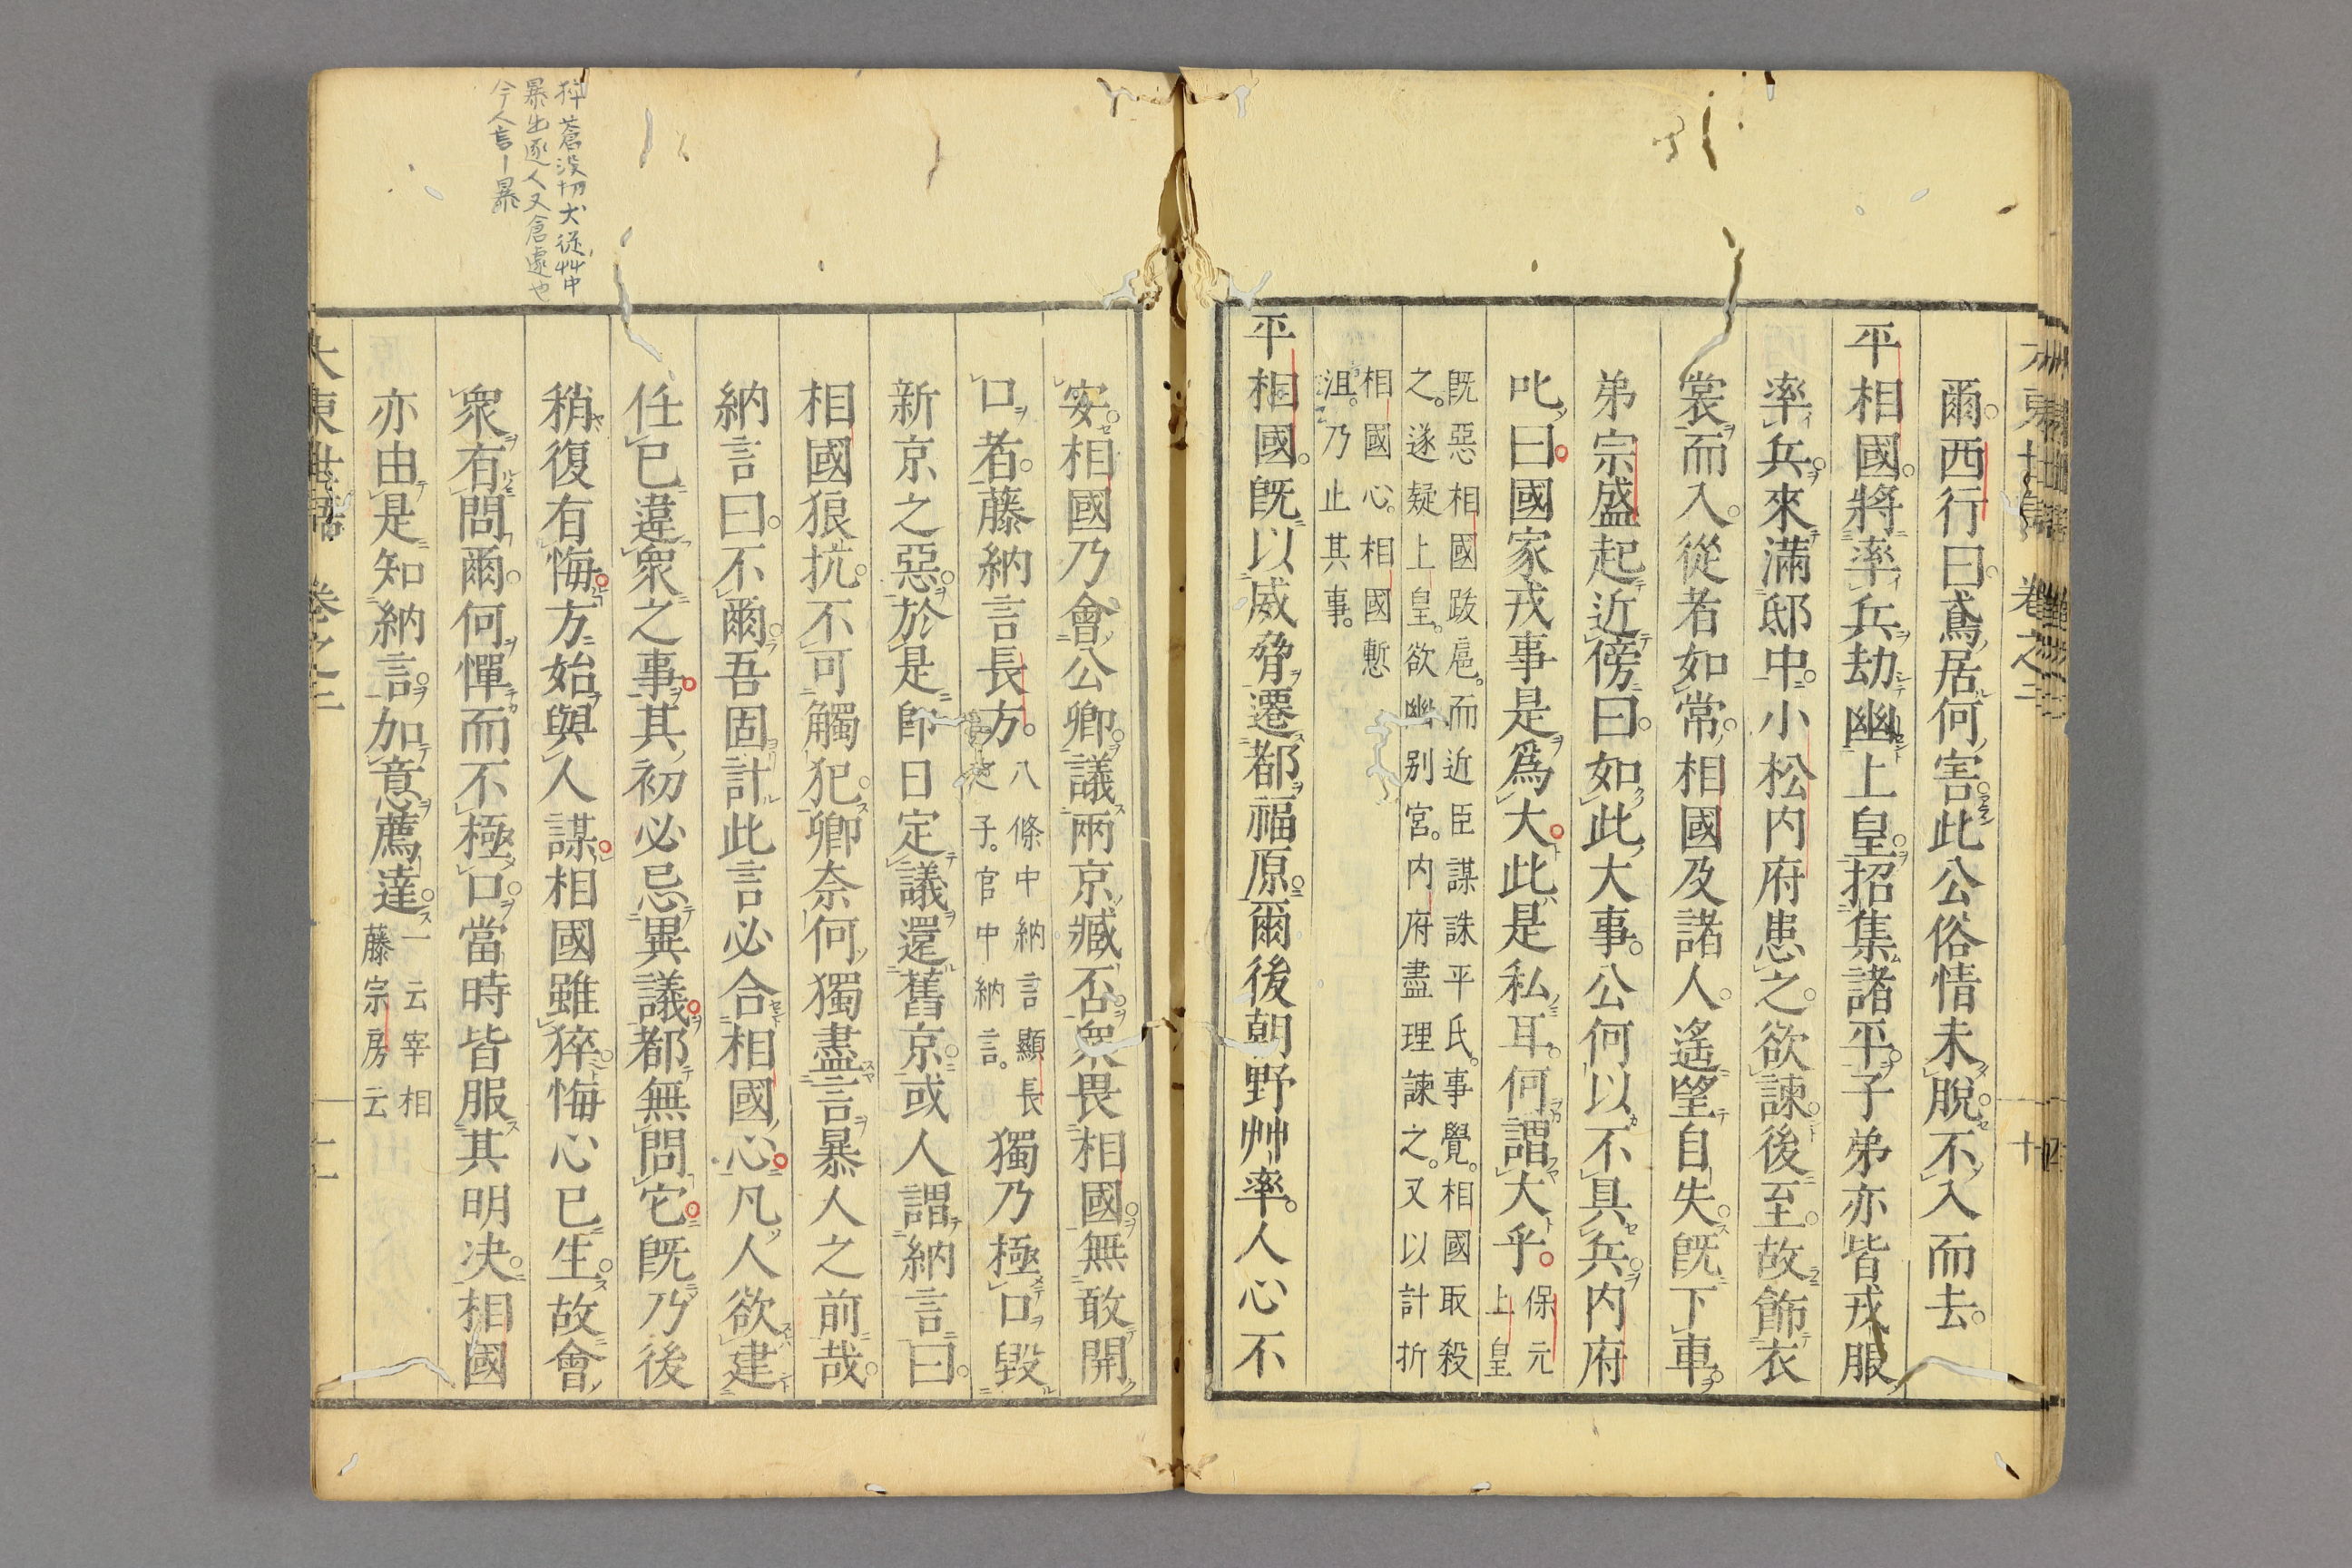 爾西行曰鳶居何害此公俗情未脫不入而去
平相國將率兵劫幽上皇招集諸平子弟亦皆戎服
率兵來滿邸中小松内府患之欲諫後至故飾衣
裳而入從者如常相國及諸人遙望自失既下車
弟宗盛起近傍曰如此大事公何以不具兵内府
叱曰國家戎事是爲大此是私耳何謂大乎
保元
上皇
既惡相國跋扈而近臣謀誅平氏事覺相國取殺
之遂疑上皇欲幽別宮内府盡理諫之又以計折
相國心相國慙
沮乃止其事
平相國既以威脅遷都福原爾後朝野艸率人心不
安相國乃會公卿議兩京臧否衆畏相國無敢開
口者藤納言長方
八條中納言顯長
之子官中納言
獨乃極口毀
新京之惡於是即日定議還舊京或人謂納言曰
相國狼抗不可觸犯卿奈何獨盡言暴人之前哉
納言曰不爾吾固計此言必合相國心凡人欲建
任已違衆之事其初必忌異議都無問它既乃後
稍復有悔方始與人謀相國雖猝悔心已生故會
衆有問爾何憚而不極口當時皆服其明決相國
亦由是知納言加意薦達
一云宰相
藤宗房云
大東世語 卷之二 十一
猝蒼没切犬從艸中
暴出逐人又倉遽也
今人言｜暴